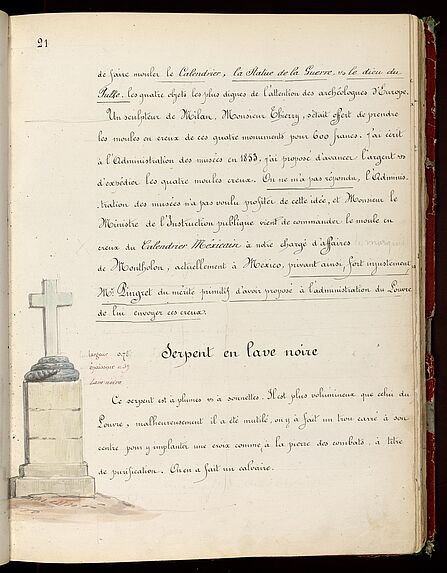 21
de faire mouler le Calendrier, la Statue de la Guerre, vs le dieu du
Pulke, les quatre objets les plus dignes de l'attention des archéologues d'Europe.
Un sculpteur de Milan, Monsieur Thierry, s'était offert de prendre
les moules en creux de ces quatre monuments pour 600 francs. j'ai écrit
à l'Administration des musées en 1853, j'ai proposé d'avancer l'argent vs
d'expédier les quatre moules creux. On ne m'a pas répondu, l'Adminis
tration des musées n'a pas voulu profiter de cette idée, et Monsieur le
Ministre de l'Instruction publique vient de commander le moule en
creux du Calendrier Mexicain à notre chargé d'affaires le marquis
de Montholon, actuellement à Mexico, privant ainsi, fort injustement
Mr Pingret du mérite primitif d'avoir proposé à l'administration du Louvre
de lui envoyer ces creux.
Serpent en lave noire
largeur 0.78
épaisseur 0.39
lave noire
Ce serpent est à plumes vs à sonnettes. Il est plus volumineux que celui du
Louvre, malheureusement il a été mutilé, on y a fait un trou carré à son
centre pour y implanter une croix comme à la pierre des combats, à titre
de purification. On en a fait un calvaire.